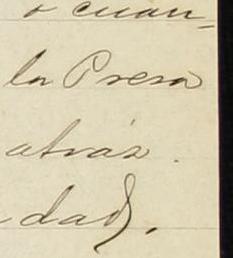 o cuan-
la Presa
atrás.
dad,